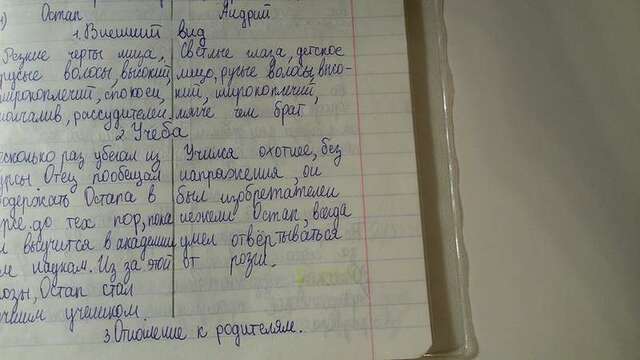 Остап Андрий
1. Внешний вид
Резкие черты лица, Светлые глаза, детское
русые волосы, высокий, лицо, русые волосы, высо-
широкоплечий, спокоен, кий, широкоплечий,
молчалив, рассудителен мягче чем брат
2 Учеба
есколько раз убегал из Учился охотнее, без
урсы. Отец пообещал напряжения, он
одержать Остапа в был изобретателен
урсе до тех пор, пока нежели Остап, всегда
н выучится в академии умел отвёртываться
ем наукам. Из за этой от розги.
розы, Остап стал
учшим учеником.
3 Отношение к родителям.